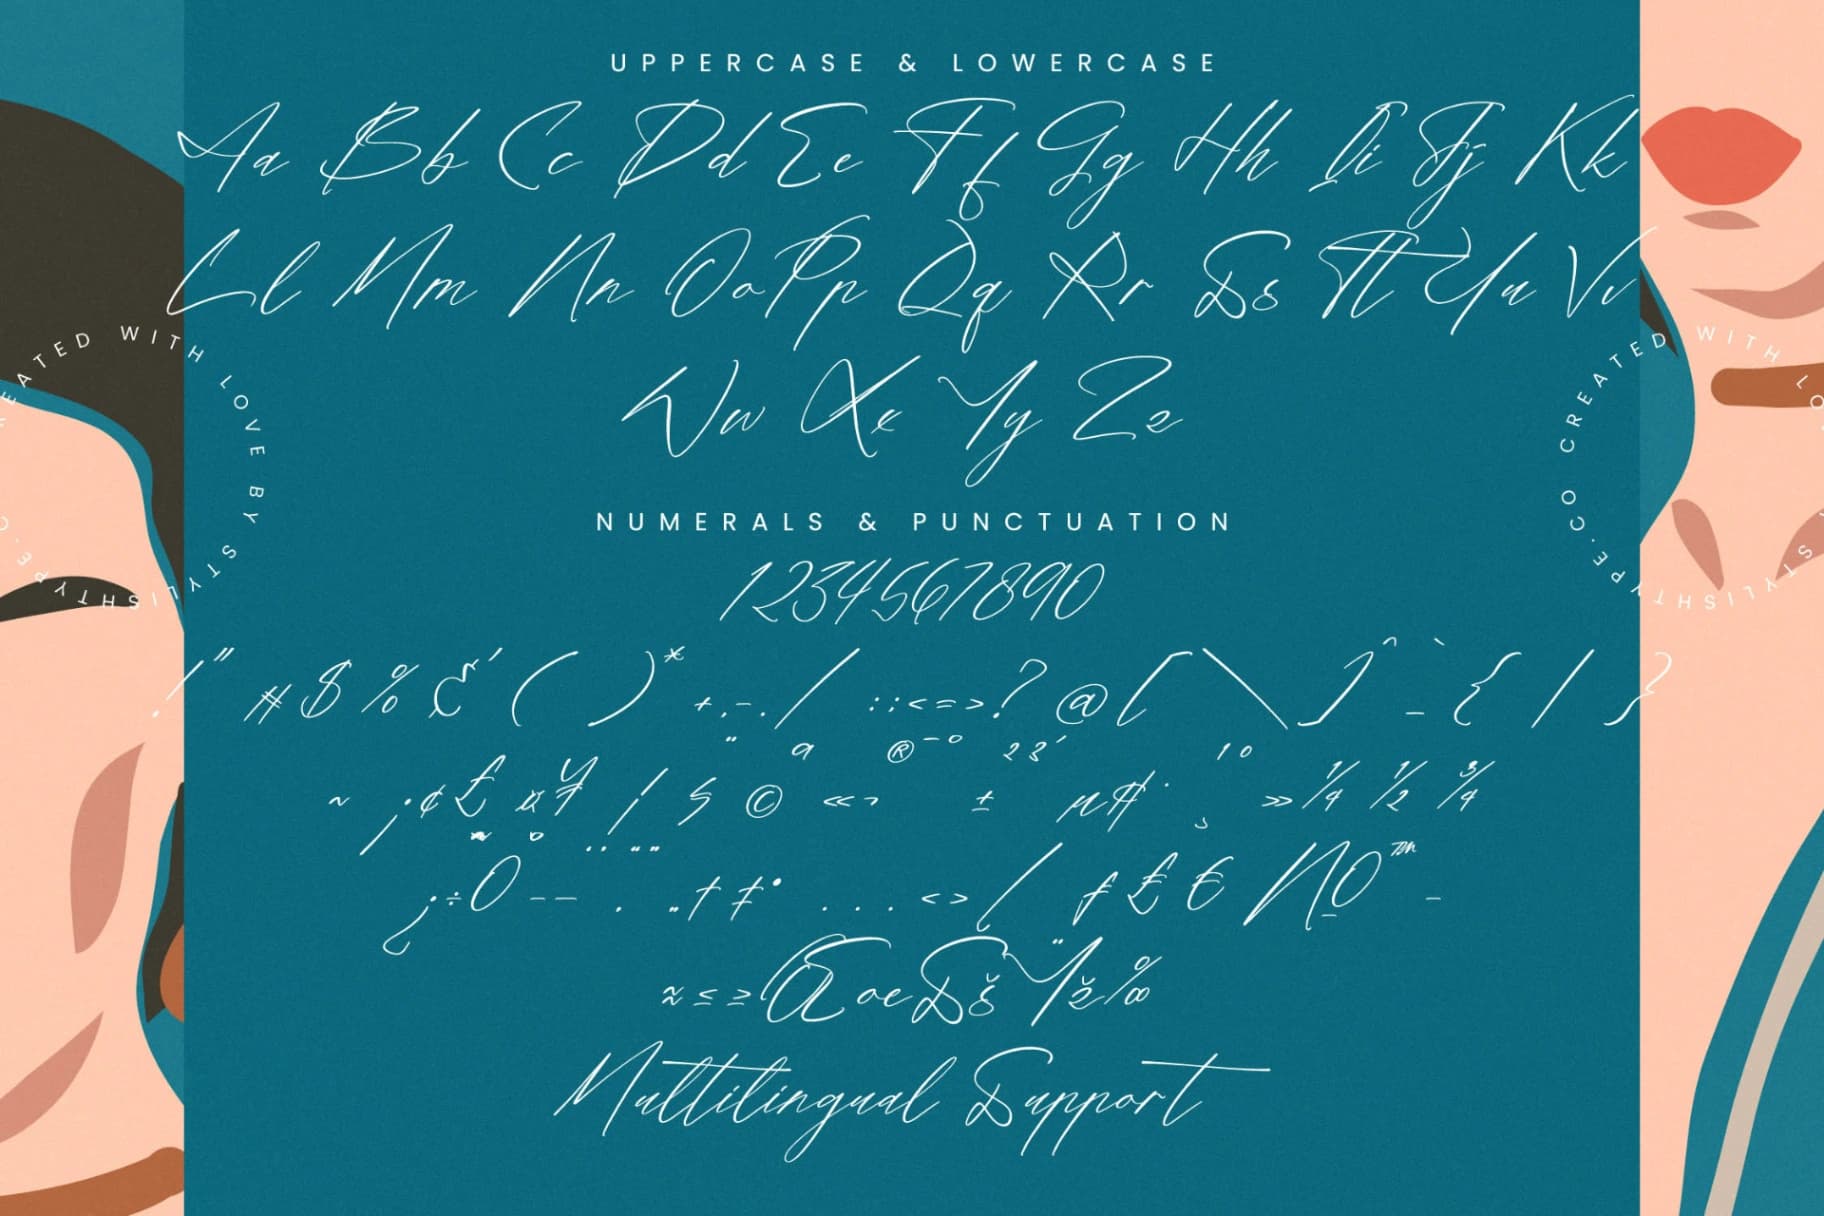 UPPERCASE & LOWERCASE
Aa Bb Cc Dd Ee Ff Gg Hh Ii Jj Kk
Ll Mm Nn Oo Pp Qq Rr Ss Tt Uu Vv
Ww Xx Yy Zz
CREATED WITH LOVE BY STYLISHTYPE.CO
CREATED WITH LOVE BY STYLISHTYPE.CO
NUMERALS & PUNCTUATION
1234567890
! " # $ % & ' ( ) * + , - . / : ; < = > ? @ [ \ ] ^ _ ` { | }
~ ¡ ¢ £ ¤ ¥ ¦ § ¨ © ª « ¬ ® ¯ ° ± ² ³ ´ µ ¶ · ¸ ¹ º » ¼ ½ ¾
¿ ÷ – — † ‡ • . . . < > / ƒ € № ™ −
≈ ≤ ≥ Œ œ Š š Ÿ ž ‰
Multilingual Support